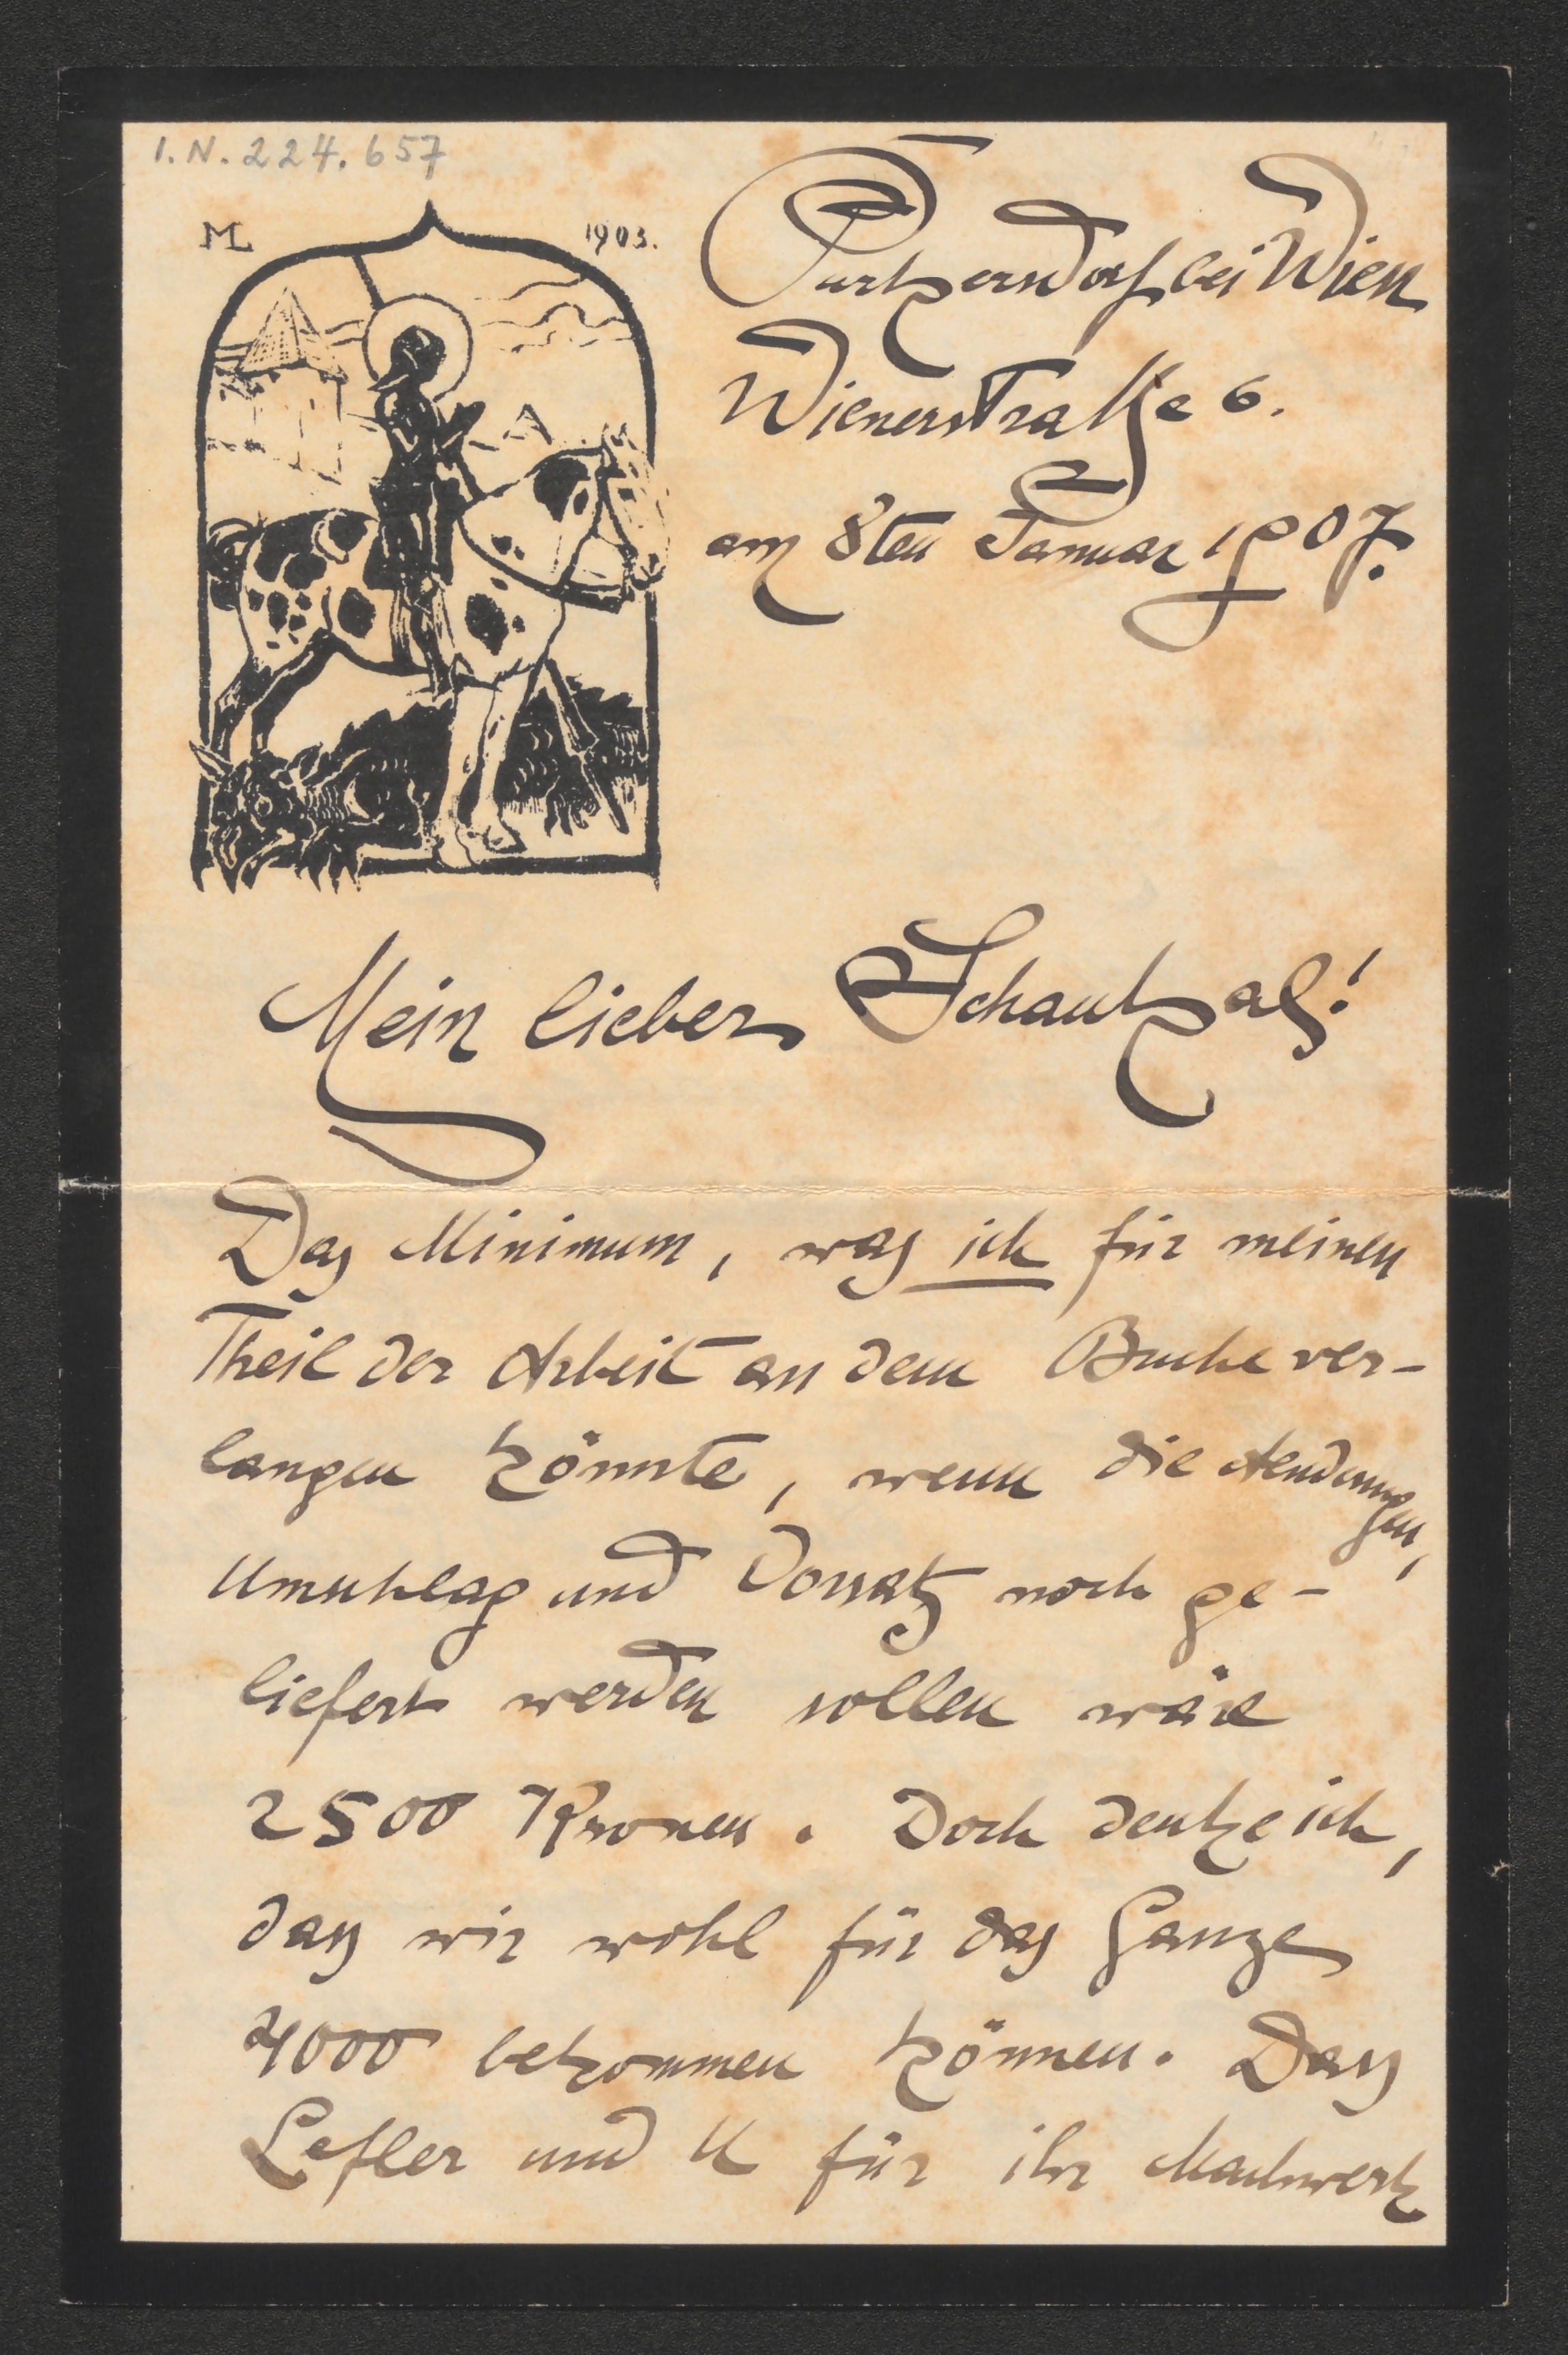 I.N. 224.657
ML 1903.
Purkersdorf bei Wien
Wienerstraße 6.
am 8ten Januar 1907.
Mein lieber Schaukal!
Das Minimum, was ich für meinen
Theil der Arbeit an dem Buche ver-
langen könnte, wenn die Aendungen,
Umschlag und Vorsatz noch ge-
liefert werden sollen wäre
2500 Kronen. Doch denke ich,
dass wir wohl für das Ganze
4000 bekommen können. Dass
Lefler und U für ihr Machwerk